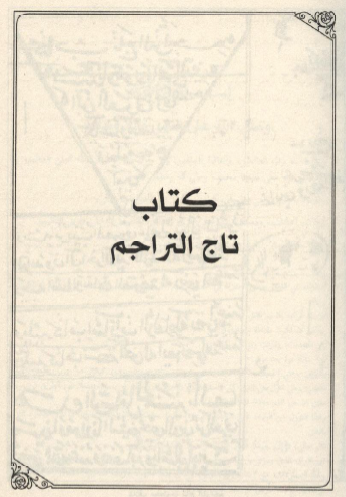 كتاب
تاج التراجم